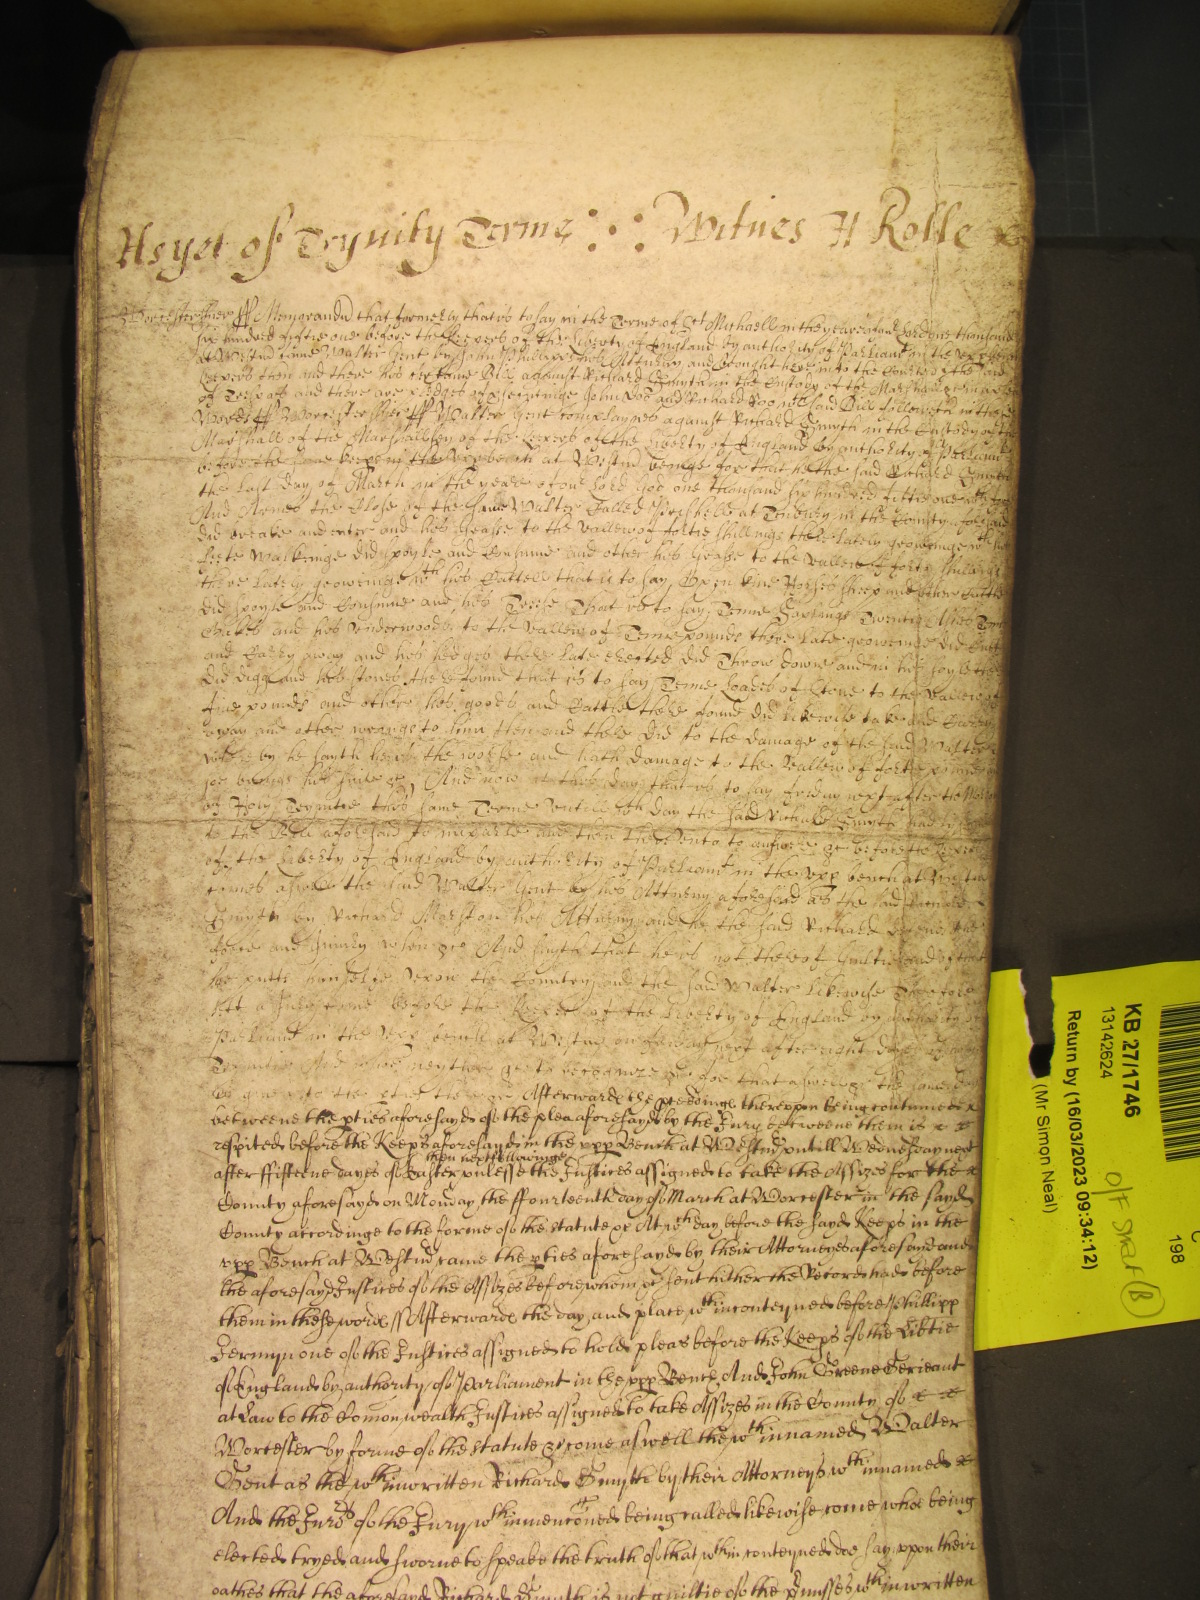 As yet of Trynity Terme Witnes H Rolle
Worcestershier ss Memorand that formerly that is to say in the Terme of St Michaell in the yeare of our Lord one thousand
six hundred fiftie one before the Keepers of the liberty of England by authority of Parliamt in the upper bench
at Westm came Walter Gent by John Phillipps his Attorney and brought here into the Court of the said
Keepers then and there his certaine Bill against Richard Smyth in the Custody of the Marshall
of Trespas and there are pledges of prosecutinge John Doe and Richard Roo wch said Bill followeth in these
words ss Worcestershier ss Walter Gent complaynes against Richard Smyth in the Custody of the
Marshall of the Marshallsey of the Keepers of the liberty of England by authority of Parliamt
before the same Keepers in the upper bench at Westm beinge for that he the said Richard Smyth
the last day of March in the yeare of our Lord God one thousand six hundred fiftie one with force
And Armes the Close of the same Walter Called at Tenbury in the County aforesaid
did breake and enter and his Grasse to the vallew of fortie shillings there lately groweinge wth his
feete walkinge did spoyle and Consume and other his Grasse to the vallew of forty shillings
there lately groweinge wth his Cattell that is to say Oxen kine Horses sheep and other Cattle
did spoyle and Consume and his Treese That is to say Tenne Saplings Twenty Ashes Tenn
Oakes and his underwoods to the vallew of Tenne pounds there late groweinge did Cutt
and Carry away and his hedges there late erected did Throw downe and in his soyle there
did digg and his stones there found that is to say Tenne Loades of stone to the vallew of
five pounds and other his goods and Cattle there found did likewise take and Carry
away and other wronge to him then and there did to the damage of the said Walter
whereby he sayth hee is the worsse and hath damage to the vallew of fortie pounds and
soe brings his suite &c And now at this day that is to say friday next after the Morrow
of Holy Trynitie this same Terme untill wch day the said Richard Smyth had
to the Bill aforesaid to imparle and then there unto to answere &c before the Keepers
of the liberty of England by authority of Parliamt in the upper bench at Westm
comes aswell the said Walter Gent by his Attorney aforesaid as the said Richard
Smyth by Richard Marston his Attorney and he the said Richard defends the
force and injury when &c And sayth that hee is not thereof guiltie and of that
he putts himselfe upon the Country and the said Walter likewise Therefore
lett a Jury come before the Keepers of the liberty of England by authority of
Parliamt in the upper bench at Westm on next after eight dayes of
Trynitie And who neyther &c to recognize &c for that aswell &c the same day
is given to the pties there &c Afterwards the pceedings thereuppon being continued
betweene the pties aforesayd of the plea aforesayd by the Jury betweene them is
respited before the Keeps aforesayd in the upp Bench at Westm untill Wednesday next
after ffifteene dayes of Easter then next followinge unlesse the Justices assigned to take the Assizes for the
County aforesayd on Monday the ffourteenth day of March at Worcester in the sayd
County accordinge to the forme of the statute &c At wch day before the sayd Keeps in the
upp Bench at Westm came the pties aforesayd by their Attorneyes aforesayd and
the aforesayd Justices of the Assizes before whom &c sent hither the Record had before
them in these words ss Afterwards the day and place wthin conteyned before Phillipp
Jermyn one of the Justices assigned to hold pleas before the Keeps of the Libtie
of England by authority of Parliament in the upp Bench And John Greene Serieant
at Law to the Comonwealth Justices assigned to take Assizes in the County of
Worcester by forme of the statute &c come aswell the wthinnamed Walter
Gent as the wthinwritten Richard Smyth by their Attorneys wthinnamed
And the Jurors of the Jury wthinmenconed being called likewise come who being
elected tryed and sworne to speake the truth of that wthin conteyned doe say uppon their
oathes that the aforesayd Richard Smyth is not guiltie of the pmisses wthinwritten
KB 27/1746
13142624
Return by (16/03/2023 09:34:12)
(Mr Simon Neal)
198